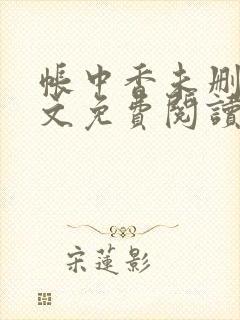 帳中香未删
文免費閱讀
宋蓮影